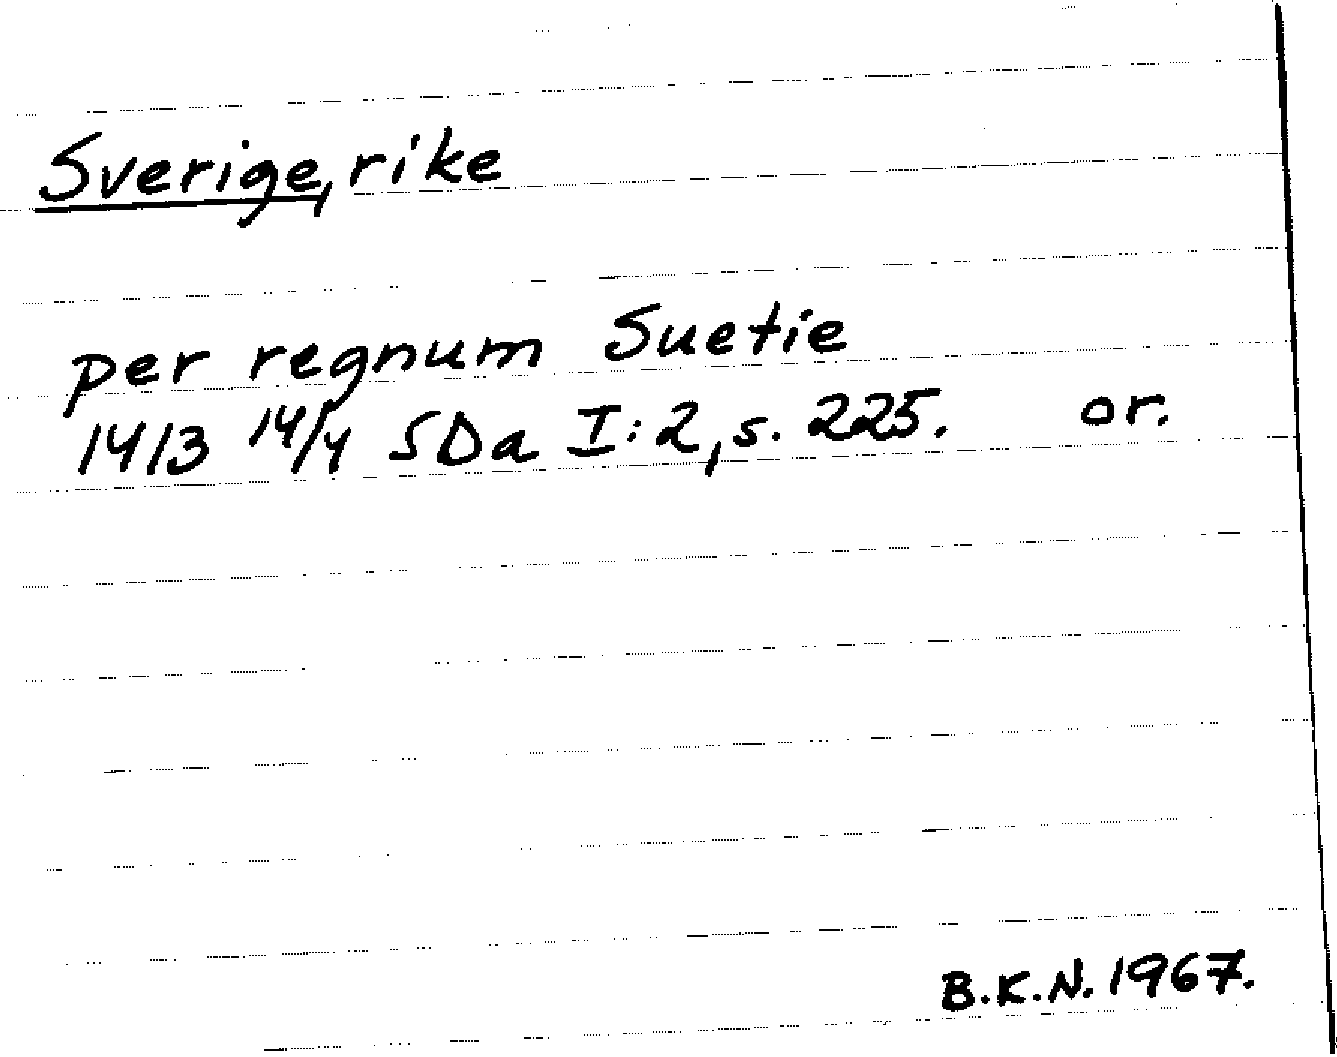 Sverige, rike
per regnum Suetie
1413 14/4 SDa I:2, s. 225. or.
B.K.N. 1967.